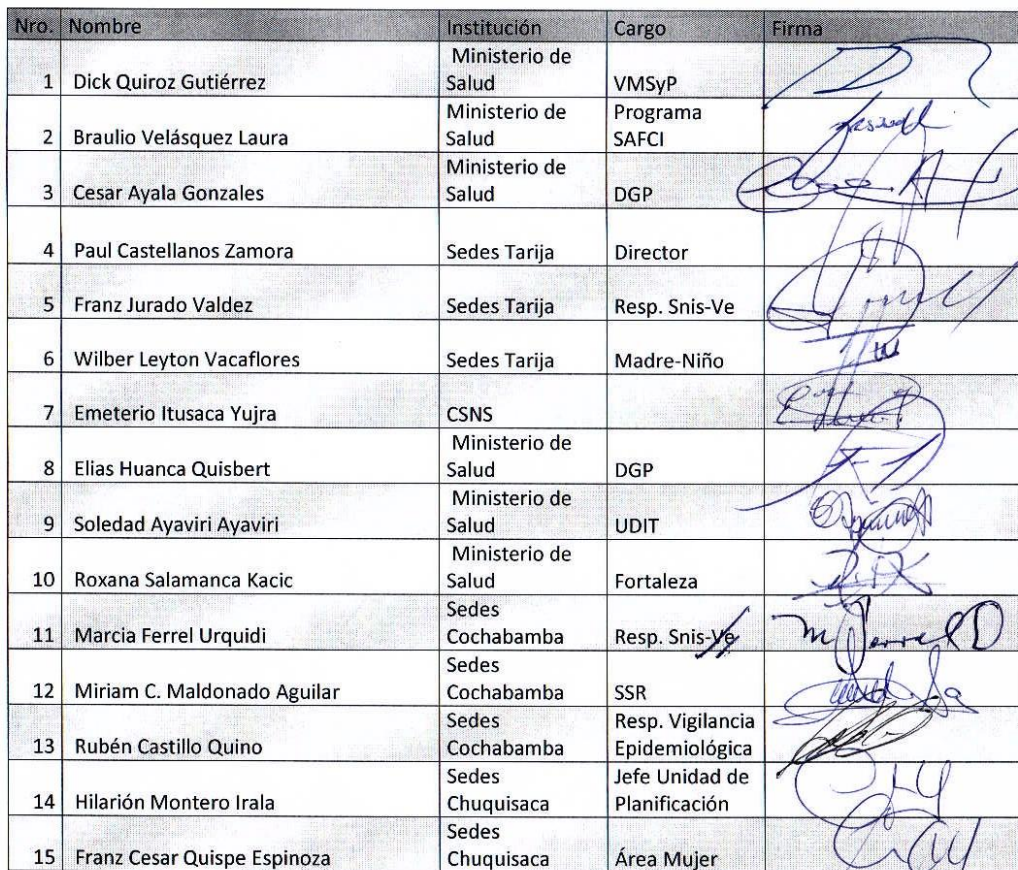 Nro. Nombre Institución Cargo Firma
1 Dick Quiroz Gutiérrez Ministerio de Salud VMSyP
2 Braulio Velásquez Laura Ministerio de Salud Programa SAFCI
3 Cesar Ayala Gonzales Ministerio de Salud DGP
4 Paul Castellanos Zamora Sedes Tarija Director
5 Franz Jurado Valdez Sedes Tarija Resp. Snis-Ve
6 Wilber Leyton Vacaflores Sedes Tarija Madre-Niño
7 Emeterio Itusaca Yujra CSNS
8 Elias Huanca Quisbert Ministerio de Salud DGP
9 Soledad Ayaviri Ayaviri Ministerio de Salud UDIT
10 Roxana Salamanca Kacic Ministerio de Salud Fortaleza
11 Marcia Ferrel Urquidi Sedes Cochabamba Resp. Snis-Ve
12 Miriam C. Maldonado Aguilar Sedes Cochabamba SSR
13 Rubén Castillo Quino Sedes Cochabamba Resp. Vigilancia Epidemiológica
14 Hilarión Montero Irala Sedes Chuquisaca Jefe Unidad de Planificación
15 Franz Cesar Quispe Espinoza Sedes Chuquisaca Área Mujer